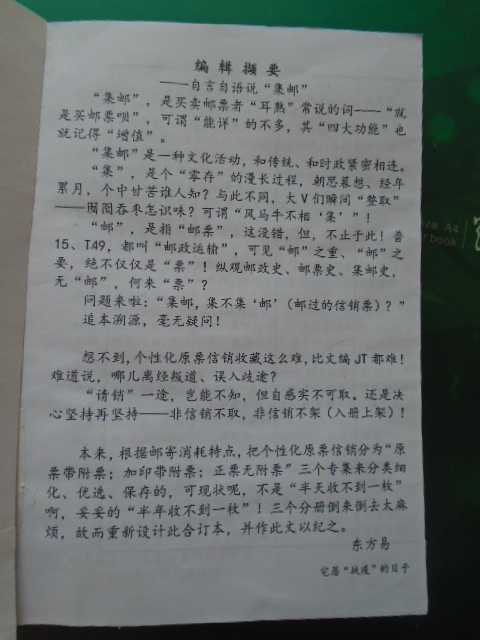 编辑撷要
——自言自语说“集邮”
“集邮”，是买卖邮票者“耳熟”常说的词——“就
是买邮票呗”，可谓“能详”的不多，其“四大功能”也
就记得“增值”。
“集邮”是一种文化活动，和传统、和时政紧密相连。
“集”，是个“零存”的漫长过程，朝思暮想、经年
累月，个中甘苦谁人知？与此不同，大V们瞬间“整取”
——囫囵吞枣怎识味？可谓“风马牛不相‘集’”！
“邮”，是指“邮票”，这没错，但，不止于此！普
15、T49，都叫“邮政运输”，可见“邮”之重、“邮”之
要，绝不仅仅是“票”！纵观邮政史、邮票史、集邮史，
无“邮”，何来“票”？
问题来啦：“集邮，集不集‘邮’（邮过的信销票）？”
追本溯源，毫无疑问！
想不到，个性化原票信销收藏这么难，比文编JT都难！
难道说，哪儿离经叛道、误入歧途？
“请销”一途，岂能不知，但自感实不可取。还是决
心坚持再坚持——非信销不取，非信销不架（入册上架）！
本来，根据邮寄消耗特点，把个性化原票信销分为“原
票带附票；加印带附票；正票无附票”三个专集来分类细
化、优选、保存的，可现状呢，不是“半天收不到一枚”
啊，妥妥的“半年收不到一枚”！三个分册倒来倒去太麻
烦，故而重新设计此合订本，并作此文以纪之。
东方易
宅居“战疫”的日子
ze A4
book